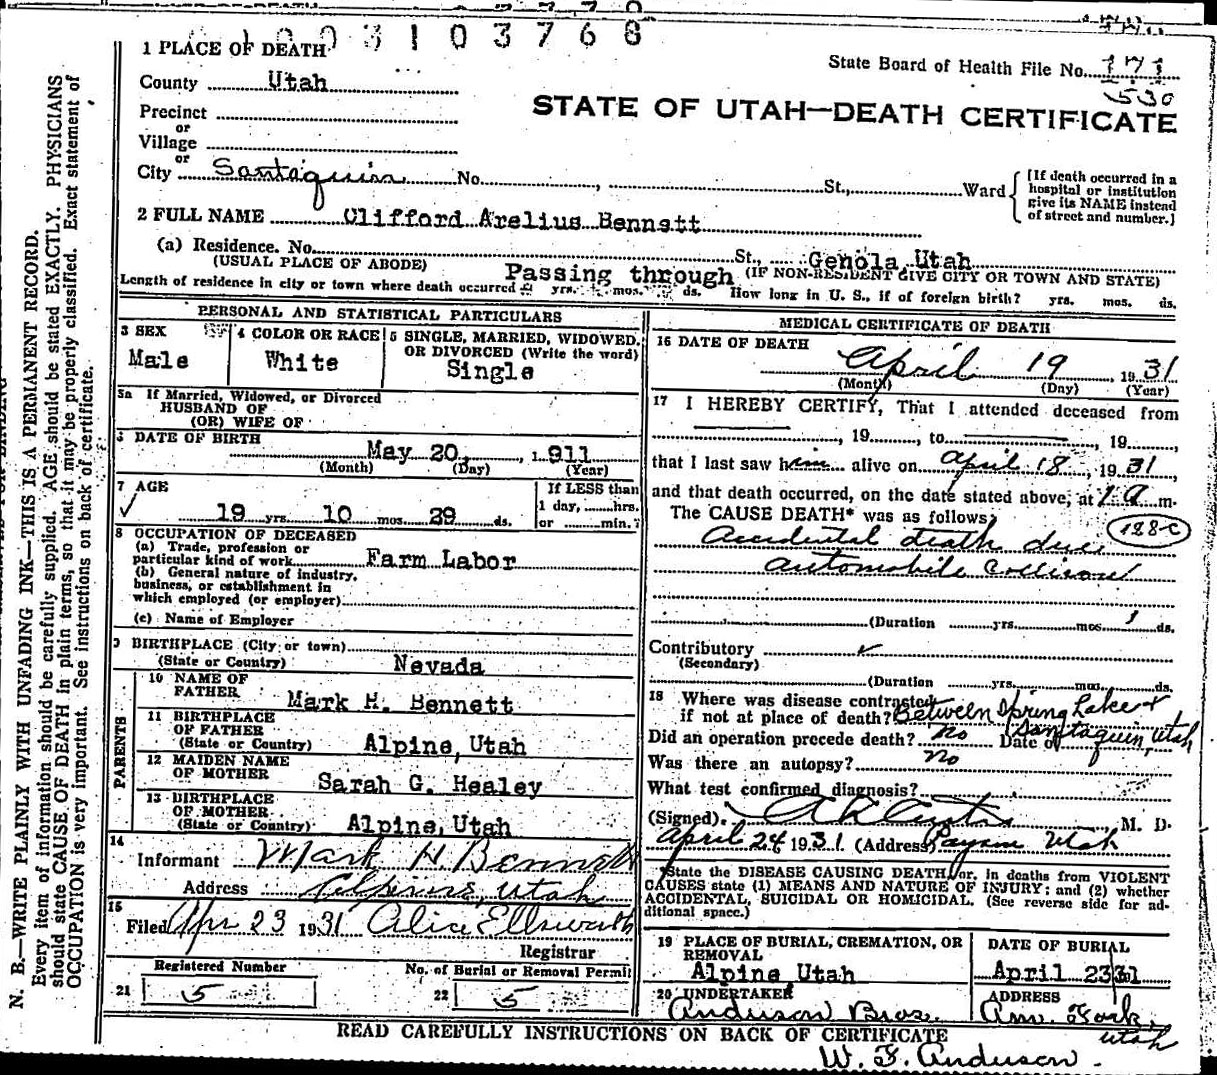 1003103768
1 PLACE OF DEATH
State Board of Health File No. 171
530
County Utah
STATE OF UTAH—DEATH CERTIFICATE
Precinct
or
Village
or
City Santaquin No. , St., Ward
[If death occurred in a hospital or institution give its NAME instead of street and number.]
2 FULL NAME Clifford Arelius Bennett
(a) Residence. No. St., Genola Utah
(USUAL PLACE OF ABODE) Passing through (IF NON-RESIDENT GIVE CITY OR TOWN AND STATE)
Length of residence in city or town where death occurred yrs. mos. ds. How long in U. S., if of foreign birth? yrs. mos. ds.
PERSONAL AND STATISTICAL PARTICULARS
3 SEX
Male
4 COLOR OR RACE
White
5 SINGLE, MARRIED, WIDOWED, OR DIVORCED (Write the word)
Single
5a If Married, Widowed, or Divorced
HUSBAND OF
(OR) WIFE OF
DATE OF BIRTH
May 20, 1911
(Month) (Day) (Year)
7 AGE
19 yrs. 10 mos. 29 ds.
If LESS than
1 day, hrs.
or min.?
8 OCCUPATION OF DECEASED
(a) Trade, profession or
particular kind of work Farm Labor
(b) General nature of industry,
business, or establishment in
which employed (or employer)
(c) Name of Employer
9 BIRTHPLACE (City or town)
(State or Country) Nevada
PARENTS
10 NAME OF
FATHER Mark H. Bennett
11 BIRTHPLACE
OF FATHER
(State or Country) Alpine, Utah
12 MAIDEN NAME
OF MOTHER Sarah G. Healey
13 BIRTHPLACE
OF MOTHER
(State or Country) Alpine, Utah
14
Informant Mark H. Bennett
Address Alpine, Utah
15
Filed Apr 23 1931 Alice Ellsworth
Registrar
Registered Number
21 5
No. of Burial or Removal Permit
22 5
MEDICAL CERTIFICATE OF DEATH
16 DATE OF DEATH
April 19, 1931
(Month) (Day) (Year)
17 I HEREBY CERTIFY, That I attended deceased from
, 19 , to , 19
that I last saw him alive on April 18, 1931
and that death occurred, on the date stated above, at 1 a m.
The CAUSE DEATH* was as follows:
128-c
Accidental death due
automobile collison
(Duration yrs. mos. 1 ds.
Contributory
(Secondary)
(Duration yrs. mos. ds.
18 Where was disease contracted
if not at place of death? Between Spring Lake &
Santaquin, Utah
Did an operation precede death? no Date of
Was there an autopsy? no
What test confirmed diagnosis?
(Signed) M. D.
April 24 1931 (Address) Payson Utah
*State the DISEASE CAUSING DEATH, or, in deaths from VIOLENT
CAUSES state (1) MEANS AND NATURE OF INJURY; and (2) whether
ACCIDENTAL, SUICIDAL OR HOMICIDAL. (See reverse side for ad-
ditional space.)
19 PLACE OF BURIAL, CREMATION, OR
REMOVAL
Alpine Utah
DATE OF BURIAL
April 23 31
20 UNDERTAKER
Anderson Bros.
ADDRESS
Am. Fork,
Utah
READ CAREFULLY INSTRUCTIONS ON BACK OF CERTIFICATE
W. F. Anderson.
N. B.—WRITE PLAINLY WITH UNFADING INK—THIS IS A PERMANENT RECORD.
Every item of information should be carefully supplied. AGE should be stated EXACTLY. PHYSICIANS
should state CAUSE OF DEATH in plain terms, so that it may be properly classified. Exact statement of
OCCUPATION is very important. See instructions on back of certificate.